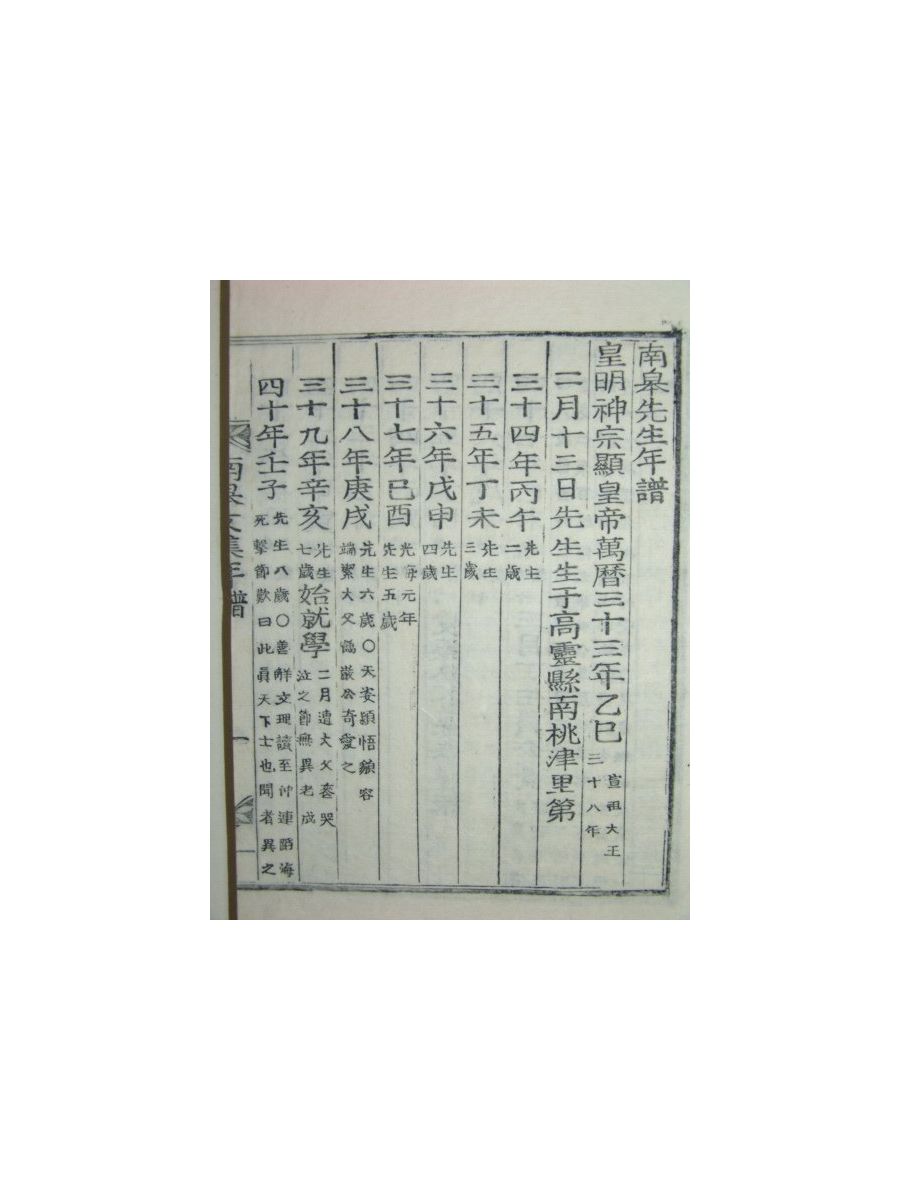 南皐先生年譜
皇明神宗顯皇帝萬曆三十三年乙巳 宣祖大王三十八年
二月十三日先生生于高靈縣南桃津里第
三十四年丙午 先生二歲
三十五年丁未 先生三歲
三十六年戊申 先生四歲
三十七年己酉 光海元年先生五歲
三十八年庚戌 先生六歲○天姿穎悟貌容端潔大父 巖公奇愛之
三十九年辛亥 先生七歲始就學 二月遭大父喪哭泣之節無異老成
四十年壬子 先生八歲○善解文理讀至仲連蹈海死擊節歎曰此眞天下士也聞者異之
南皐文集年譜 一